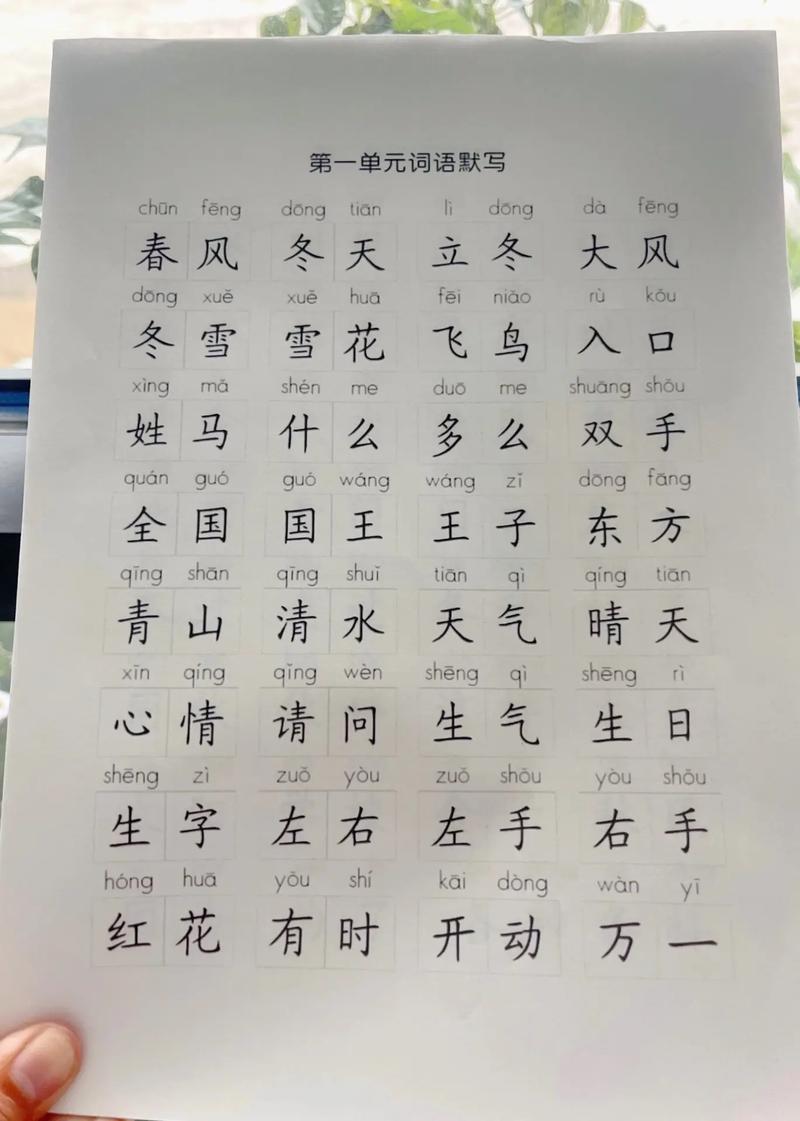 第一单元词语默写
chūn fēng dōng tiān lì dōng dà fēng
春风 冬天 立冬 大风
dōng xuě xuě huā fēi niǎo rù kǒu
冬雪 雪花 飞鸟 入口
xìng mǎ shén me duō me shuāng shǒu
姓马 什么 多么 双手
quán guó guó wáng wáng zǐ dōng fāng
全国 国王 王子 东方
qīng shān qīng shuǐ tiān qì qíng tiān
青山 清水 天气 晴天
xīn qíng qǐng wèn shēng qì shēng rì
心情 请问 生气 生日
shēng zì zuǒ yòu zuǒ shǒu yòu shǒu
生字 左右 左手 右手
hóng huā yǒu shí kāi dòng wàn yī
红花 有时 开动 万一